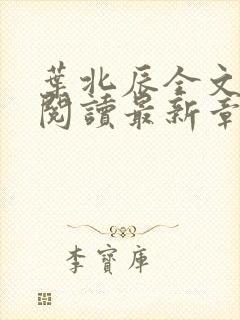 葉北辰全文
閱讀最新章
李寶庫